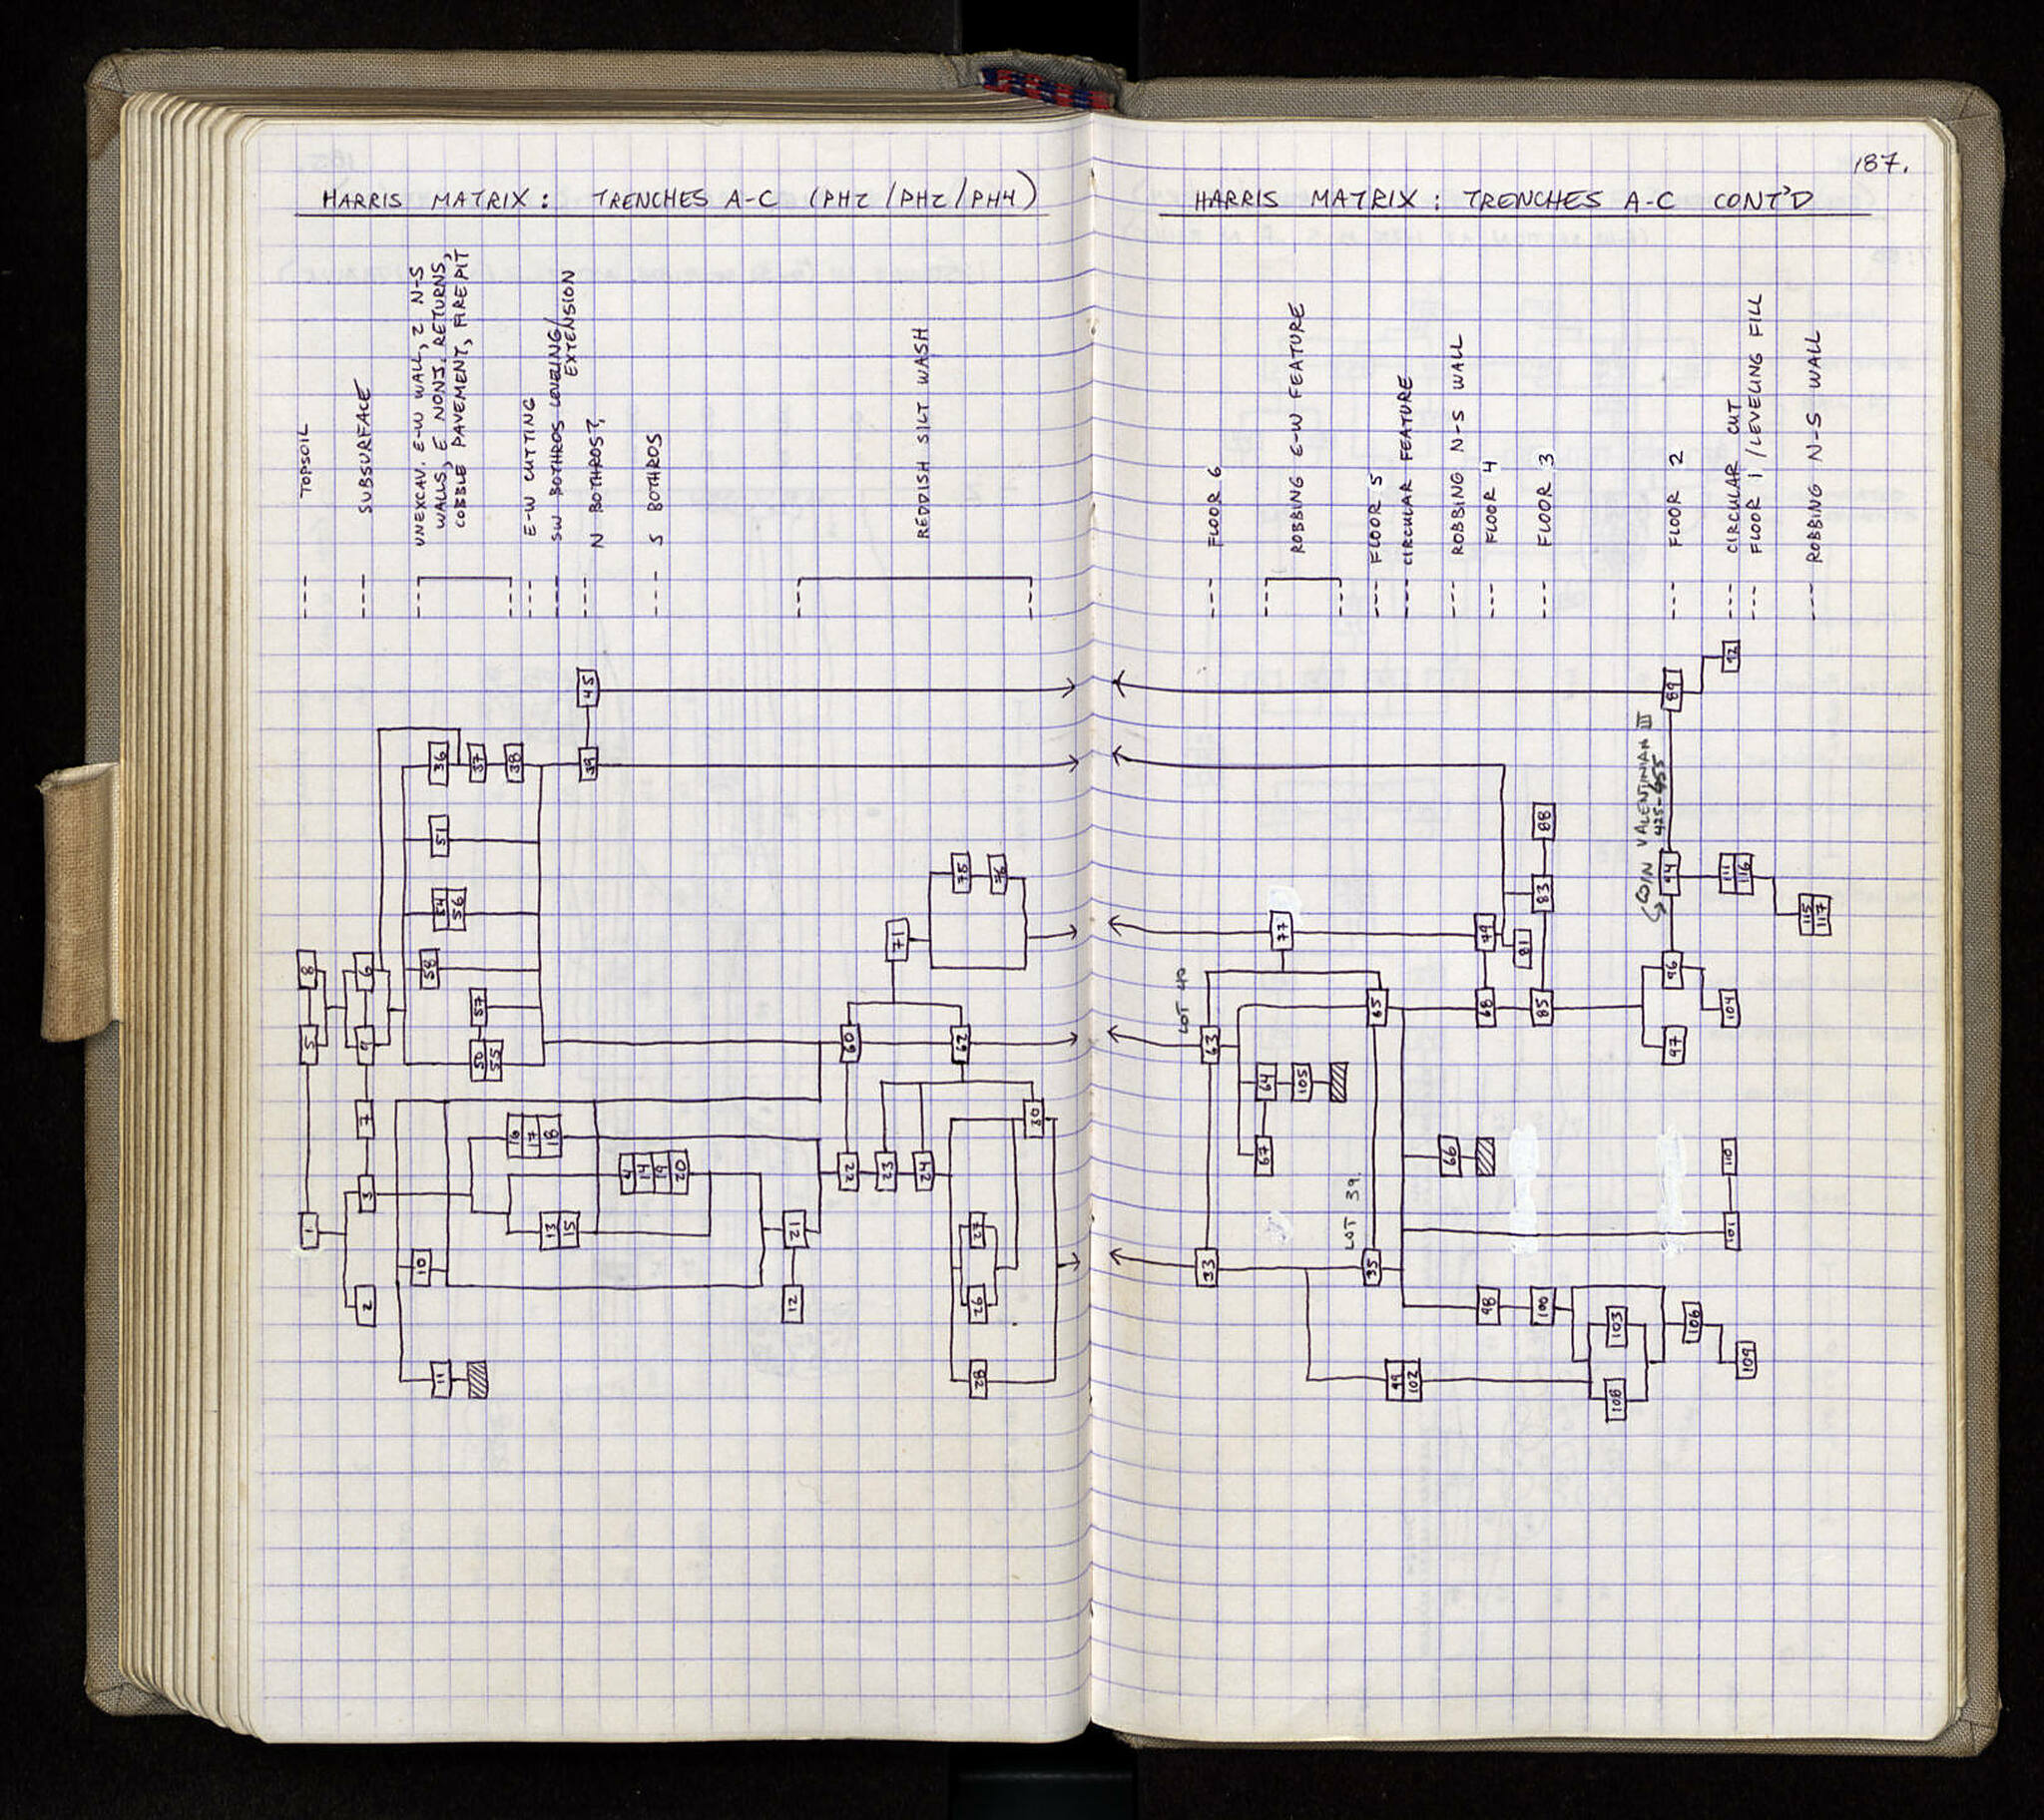 HARRIS MATRIX: TRENCHES A-C (PHZ/PHZ/PH4)
TOPSOIL
SUBSURFACE
UNEXCAV. E-W WALL, 2 N-S
WALLS, E NONJ. RETURNS,
COBBLE PAVEMENT, FIREPIT
E-W CUTTING
SW BOTHROS LEVELING/
EXTENSION
N BOTHROS?
S BOTHROS
REDDISH SILT WASH
45
36
37
38
39
51
54
56
58
57
50
55
8
5
6
9
7
3
1
2
10
11
16
17
18
4
14
19
20
13
15
21
12
60
62
71
75
76
22
23
24
30
27
26
28
187.
HARRIS MATRIX: TRENCHES A-C CONT'D
FLOOR 6
ROBBING E-W FEATURE
FLOOR 5
CIRCULAR FEATURE
ROBBING N-S WALL
FLOOR 4
FLOOR 3
FLOOR 2
CIRCULAR CUT
FLOOR 1/LEVELING FILL
ROBBING N-S WALL
92
89
COIN VALENTINIAN III
425-455
88
83
94
111
116
115
117
77
79
81
LOT 40
63
65
68
85
96
97
104
64
105
67
66
LOT 39.
110
101
33
35
98
100
103
108
106
109
99
102